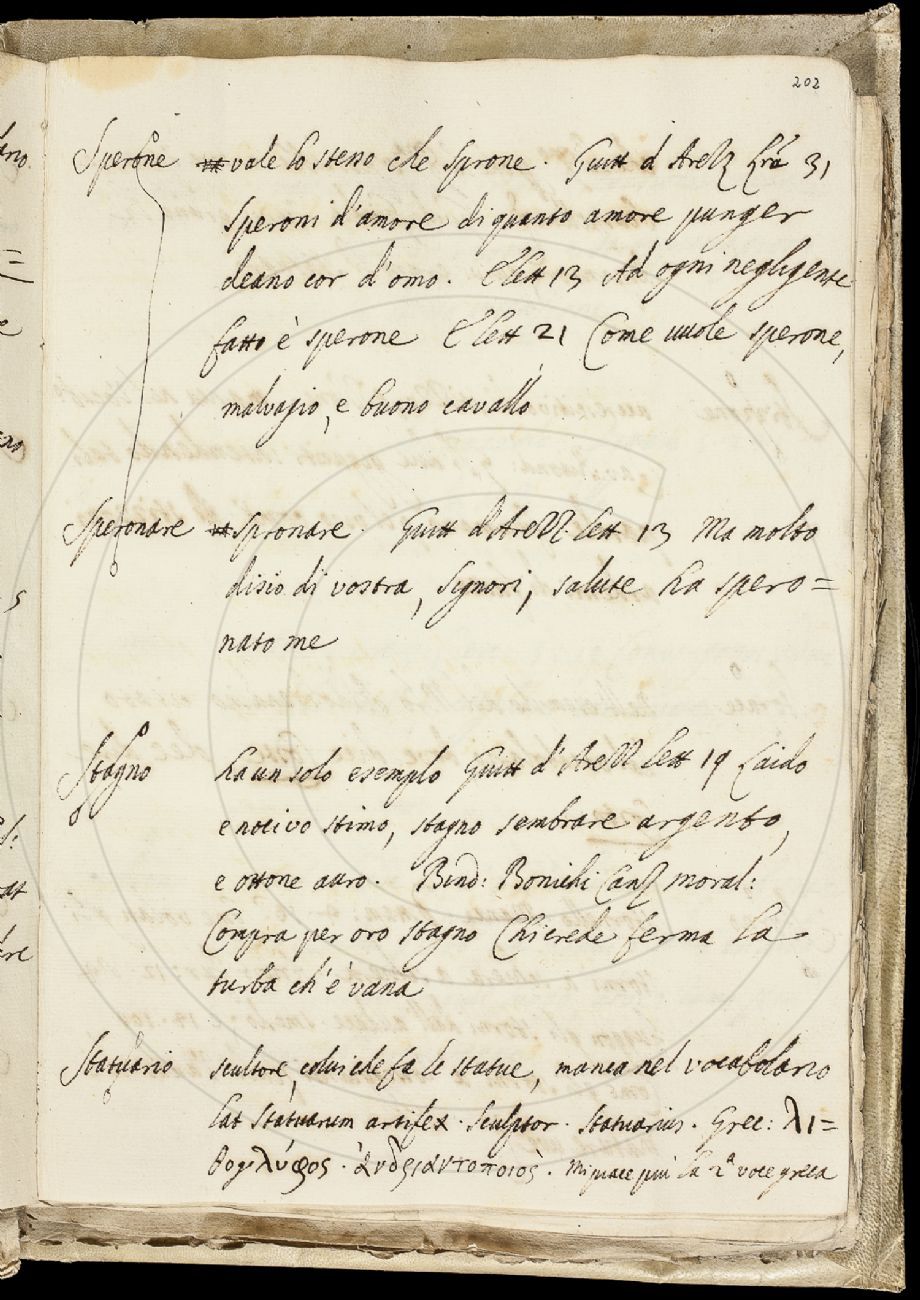 202
Sperone vale lo stesso che sprone. Guitt d'Arezz Lrâ 31
Speroni d'amore di quanto amore punger
deano cor d'omo. E lett 13 Ad ogni negligente
fatto è sperone E lett 21 Come vuole sperone,
malvagio, e buono cavallo
Speronare Spronare. Guitt d'Arezz. lett 13 Ma molto
disio di vostra, Signori, salute ha spero=
nato me
Stagno ha un solo esemplo Guitt d'Arezz lett 19 Laido
e nocivo stimo, stagno sembrare argento,
e ottone auro. Bind: Bonichi Canz moral:
Compra per oro stagno Chi crede ferma la
turba ch'è vana
Statuario scultore, colui che fa le statue, manca nel vocabolario
lat Statuarum artifex. Sculptor. Statuarius. Grec: λι=
θογλύφος. ἀνδριαντοποιός. Mi piace più la 2ª voce greca